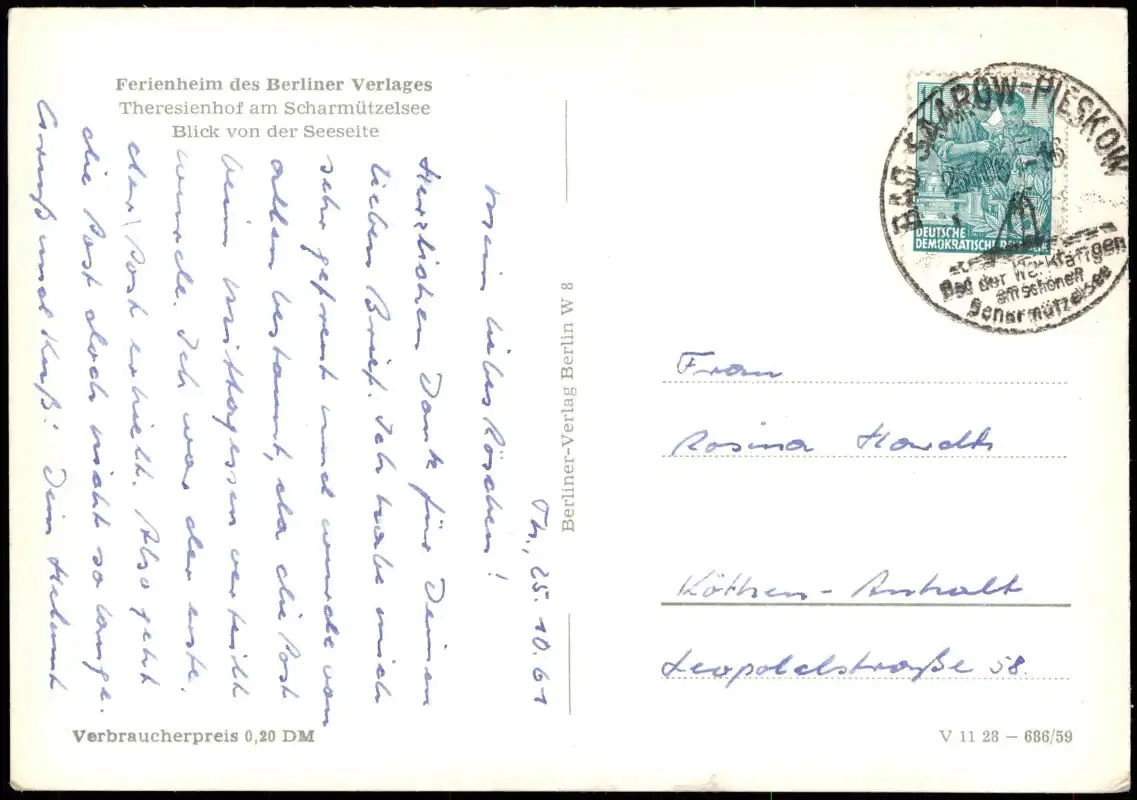 Ferienheim des Berliner Verlages
Theresienhof am Scharmützelsee
Blick von der Seeseite
Th., 25.10.61
Mein liebes Röschen!
Herzlichen Dank für Deinen
lieben Brief. Ich habe mich
sehr gefreut und wurde von
allen bestaunt, da die Post
beim Mittagessen verteilt
wurde. Ich war der erste
der Post erhielt. Also geht
die Post doch nicht so lange.
Gruß und Kuß! Dein Helmut
Verbraucherpreis 0,20 DM
Berliner-Verlag Berlin W 8
BAD SAAROW-PIESKOW
10
DEUTSCHE
DEMOKRATISCHE REPUBLIK
Bad der Werktätigen
am schönen
Scharmützelsee
Frau
Rosina Hardth
Köthen-Anhalt
Leopoldstraße 58.
V 11 28 — 686/59